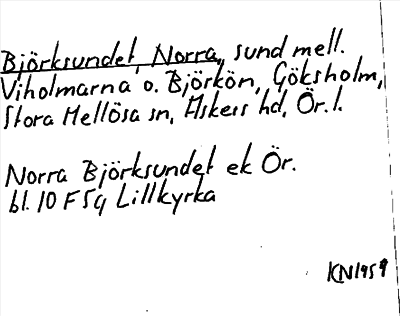 Björksundet, Norra, sund mell.
Viholmarna o. Björkön, Göksholm,
Stora Mellösa sn, Askers hd, Ör. l.
Norra Björksundet ek Ör.
bl. 10 F 5g Lillkyrka
KN1959